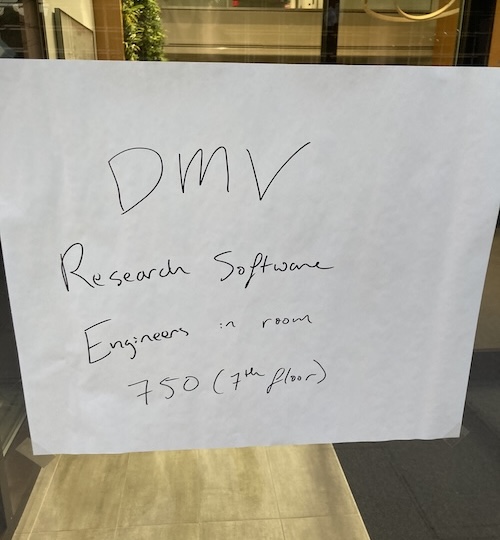 DMV
Research Software
Engineers in room
750 (7th floor)